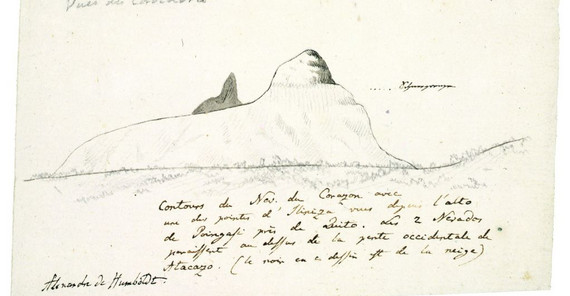 Vues des Cordillères
..... Schneegrenze
Contours du Nev. du Corazon avec
une des pointes d'Iliniza vues depuis l'alto
de Poingasi près de Quito. Les 2 Nevados
paraissent au dessus de la pente occidentale de
Atacazo. (le noir en ce dessin est de la neige)
Alexandre de Humboldt.